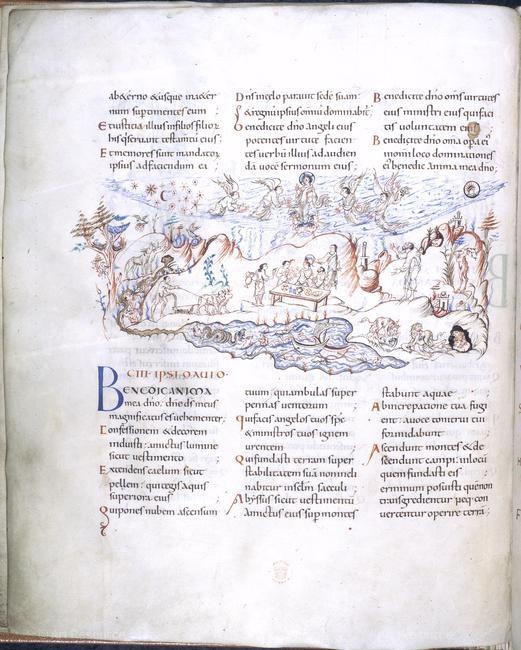 ab&erno &usque in&er
num sup timentes eum ;
Et iustitia illius in filios filior
his qui seruant testamtu eius
Et memores sunt mandator
ipsius ad faciendum ea
Dns in celo parauit sede suam
& regnu ipsius omniu dominabit ;
Benedicite dno angeli eius
potentes uirtute facien
tes uerbu illius ad audien
da uoce sermonum eius ;
Benedicite dno oms uirtutes
eius ministri eius qui faci
tis uoluntatem
Benedicite dno oma opa ei
in omi loco dominationes
ei benedic anima mea dno ;
CIII · IPSI DAUID ·
BENEDIC ANIMA
mea dno · dne ds meus
magnificatus es uehementer ;
Confessionem & decorem
induisti · amictus lumine
sicut uestimento
Extendens caelum sicut
pellem · qui tegis aquis
superiora eius
Qui ponis nubem ascensum
tuum · qui ambulas super
pennas uentorum
Qui facis angelos tuos spc
& ministros tuos ignem
urentem
Qui fundasti terram super
stabilitatem sua non incli
nabitur in sclm saeculi
Abyssus sicut uestimentu
amictus eius sup montes
stabunt aquae
Ab increpatione tua fugi
ent · a uoce tonitrui tui
formidabunt
Ascendunt montes & de
scendunt campi · in locu
quem fundasti eis
Terminum posuisti que non
transgredientur neq · con
uertentur operire terra ;